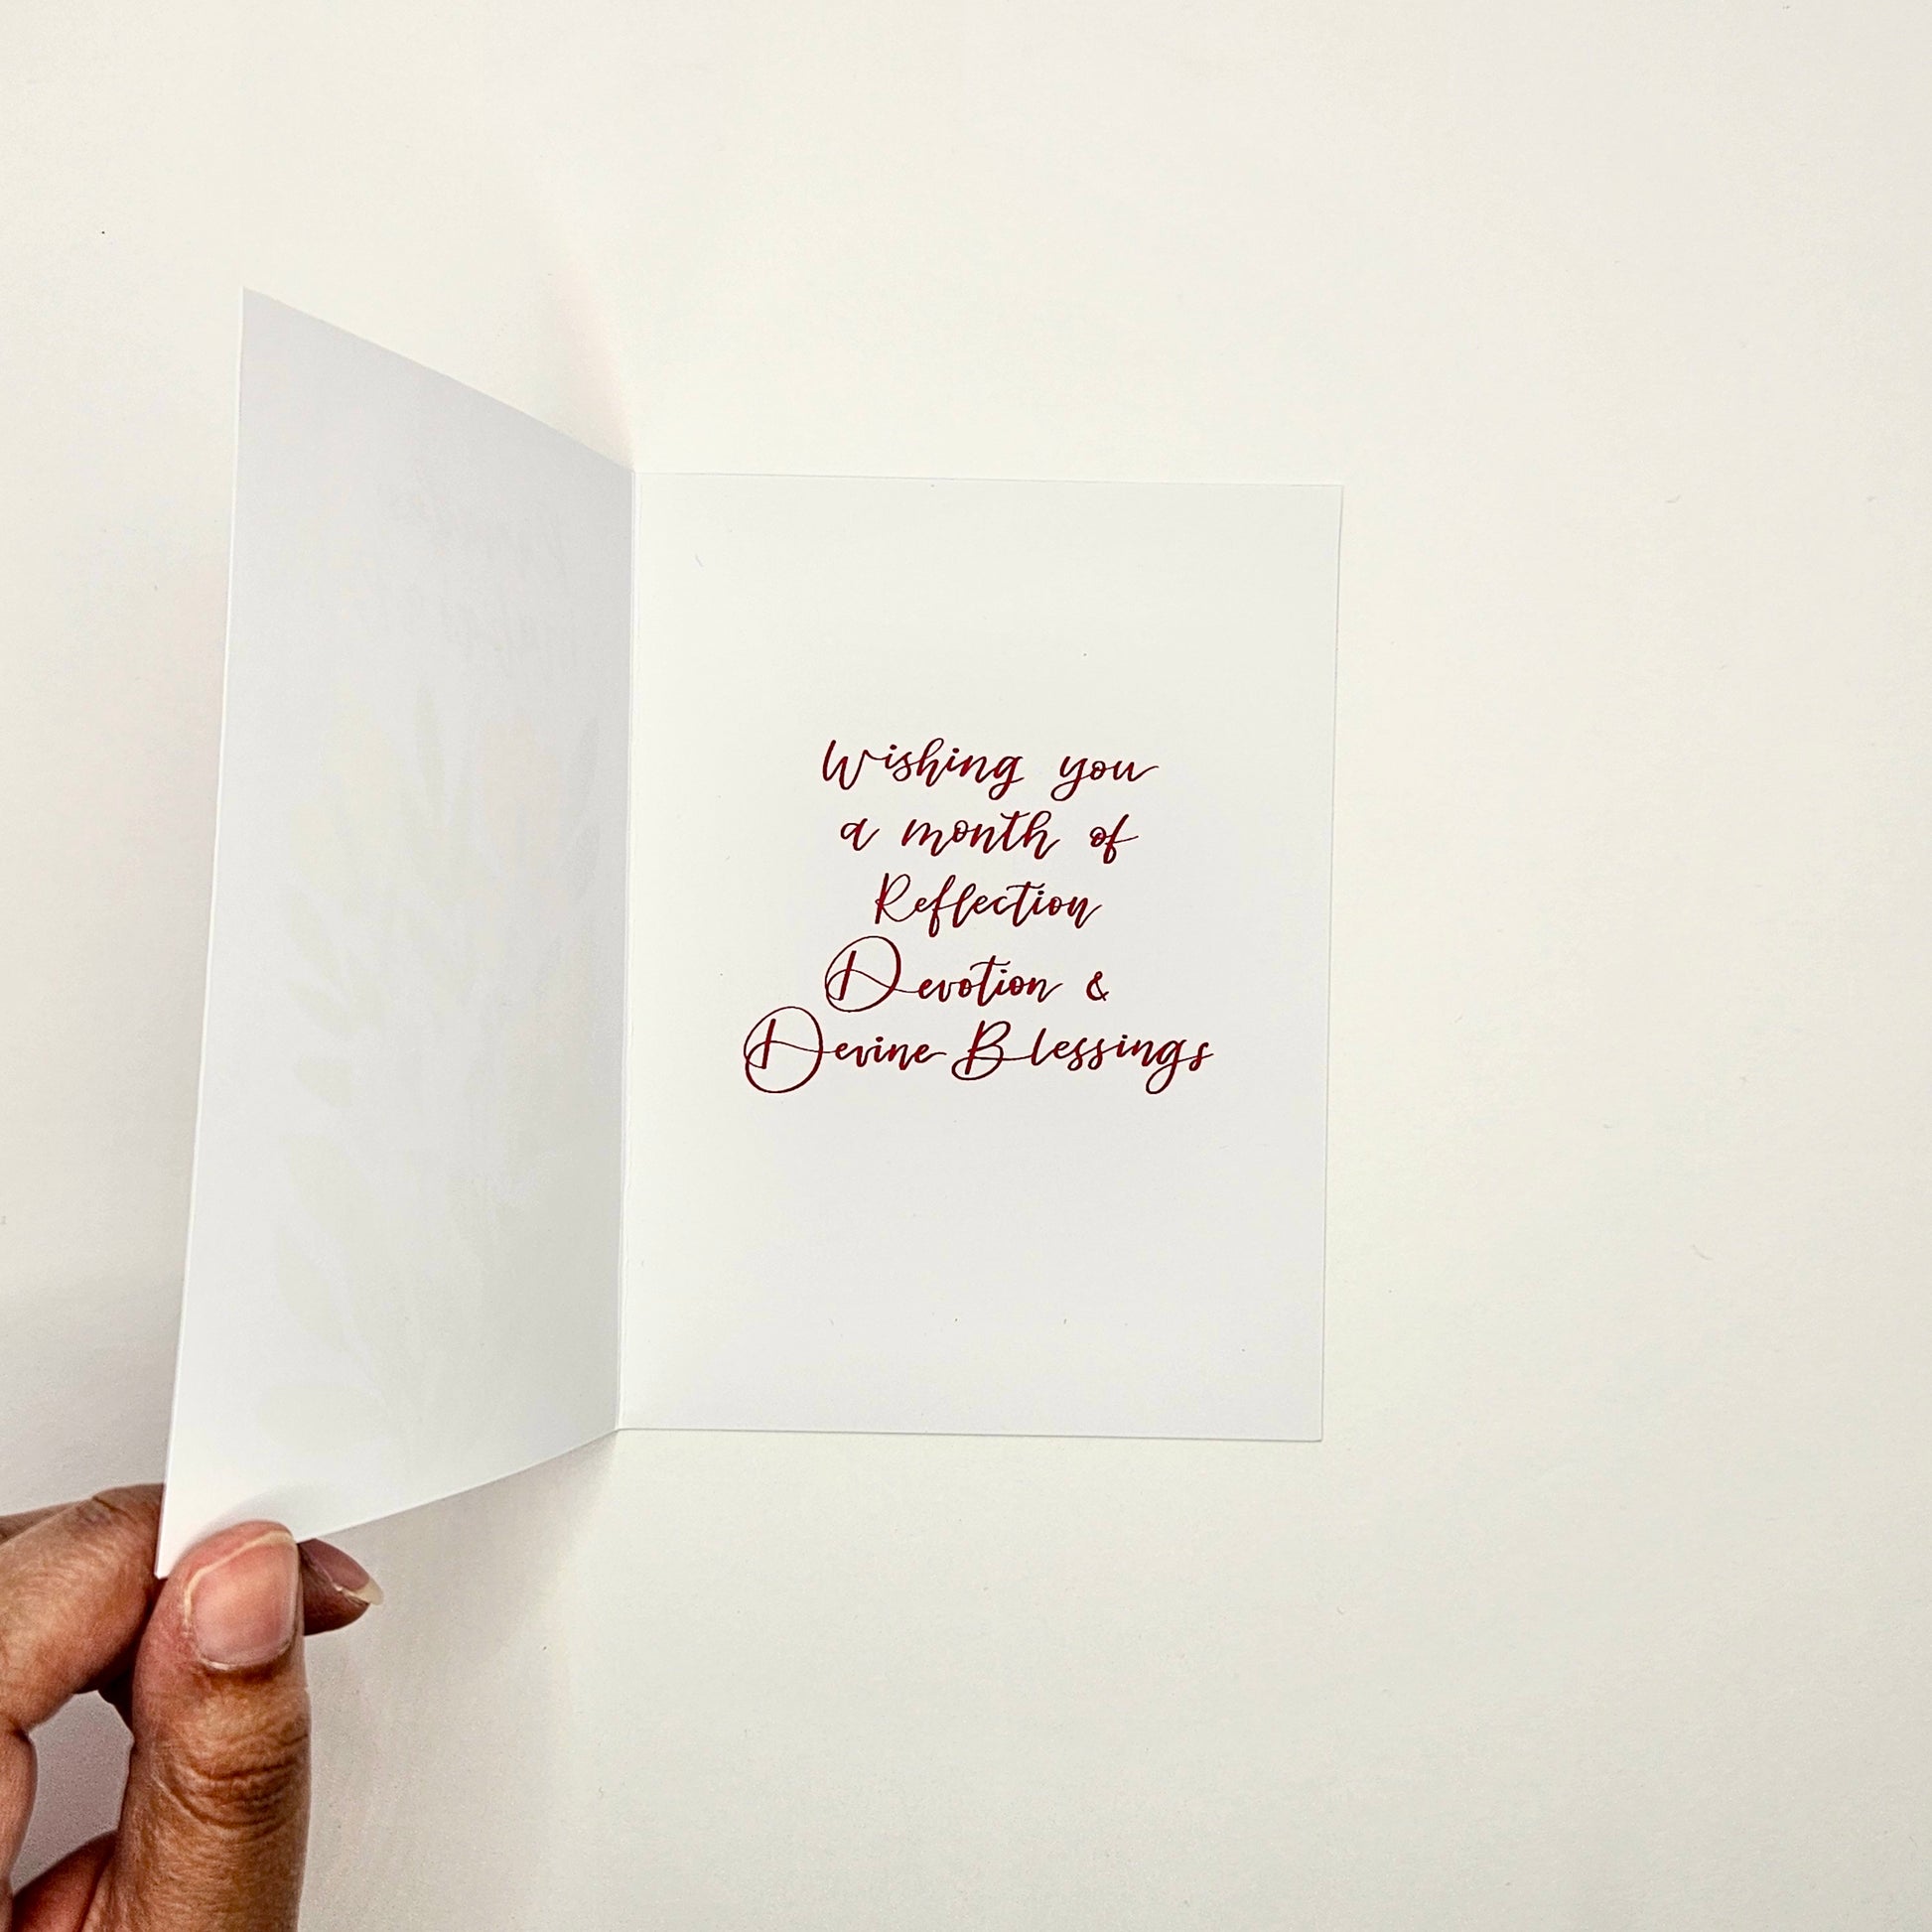 Wishing you
a month of
Reflection
Devotion &
Devine Blessings